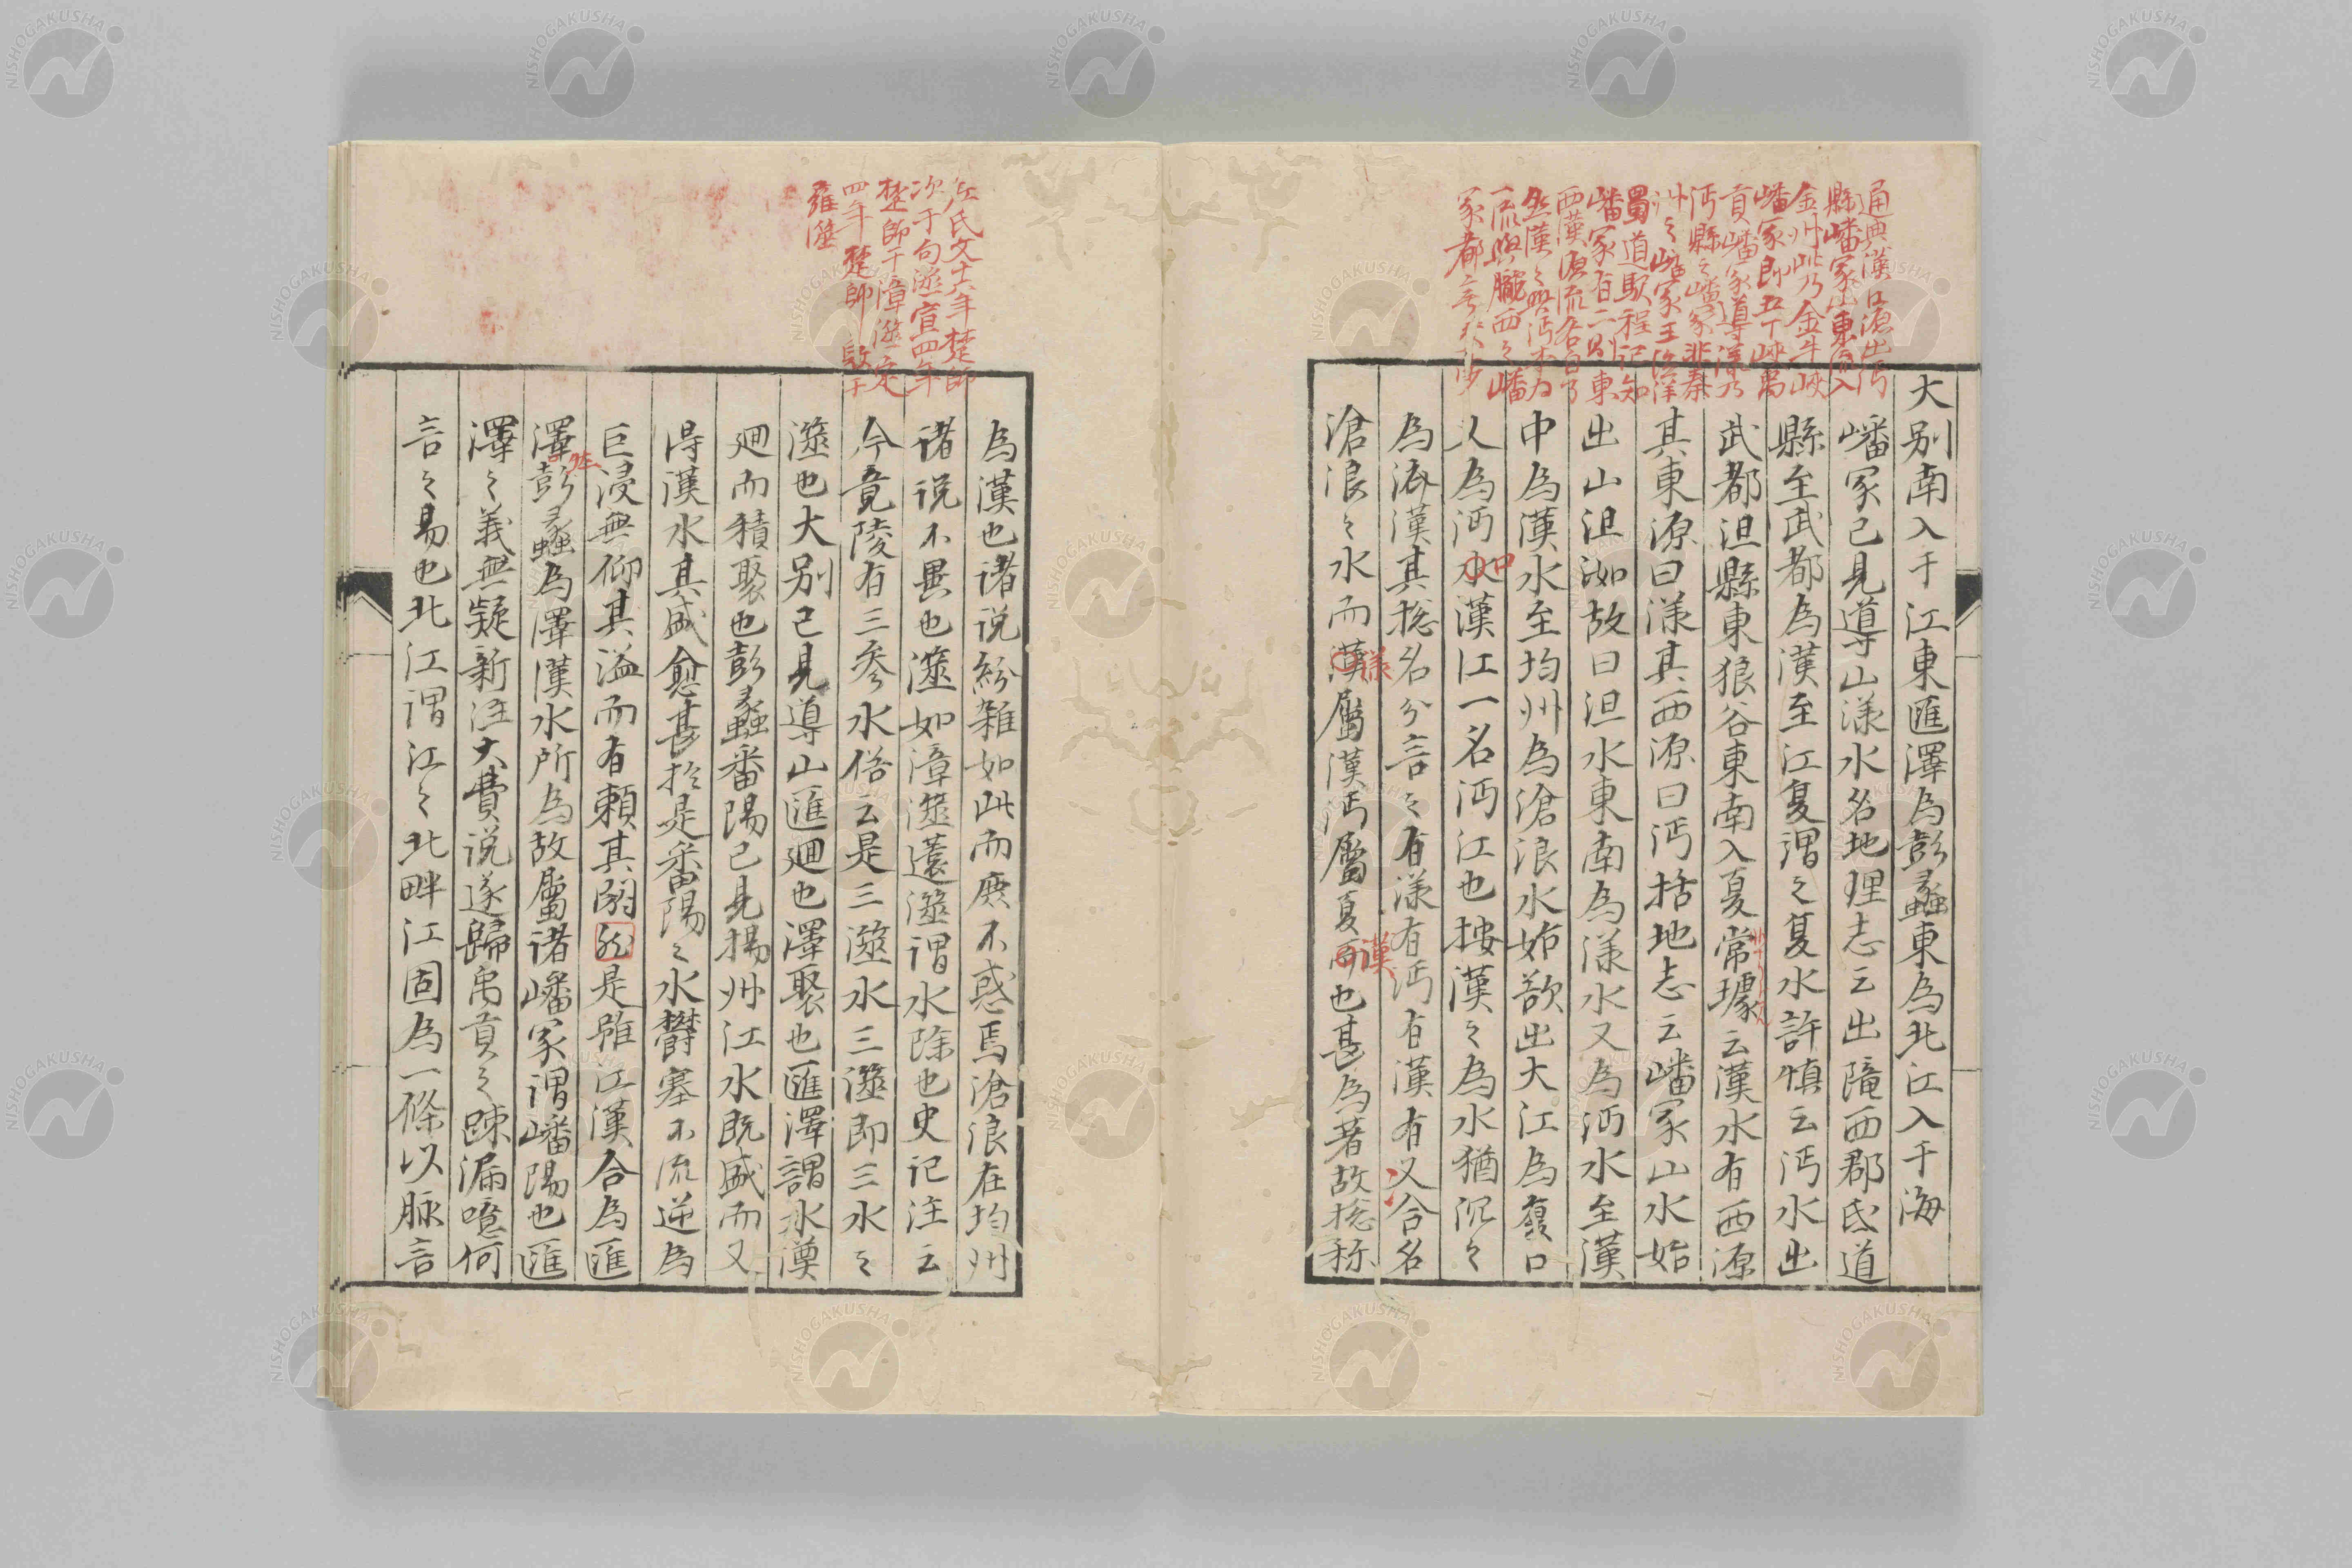 大別南入于江東匯澤為彭蠡東為北江入于海
嶓冢已見導山漾水名地理志云出隴西郡氐道
縣至武都為漢至江夏謂之夏水許慎云沔水出
武都沮縣東狼谷東南入夏常璩云漢水有西源
其東源曰漾其西源曰沔括地志云嶓冢山水始
出山沮洳故曰沮水東南為漾水又為沔水至漢
中為漢水至均州為滄浪水始欲出大江為夏口
又為沔水漢江一名沔江也按漢之為水猶沉之
為济漢其総名分言之有漾有沔有漢有又合名
滄浪之水而漢屬漢沔屬夏可也甚為著故総称
為漢也諸说紛雑如此而庶不惑焉滄浪在均州
诸说不異也澨如漳澨薳澨謂水除也史记注云
今竟陵有三参水俗云是三澨水三澨即三水之
澨也大別已見導山匯廻也澤聚也匯澤謂水漢
廻而積聚也彭蠡番陽已見揚州江水既盛而又
得漢水其盛愈甚於是番陽之水欝塞不流逆為
巨浸無仰其溢而有頼其是雖江漢合為匯
澤彭蠡為澤漢水所為故屬諸嶓冢謂嶓陽也匯
澤之義無疑新注大費说遂歸禹貢之踈漏噫何
言之易也北江謂江之北畔江固為一條以脉言
通典漢江源出沔
縣嶓冢山東流入
金州此乃金牛峽
嶓冢即五丁峽禹
貢嶓冢導漾乃
沔縣之嶓冢非秦
州之嶓冢王漁洋
蜀道馭程記知
嶓冢有二則東
西漢源流各自
一流與隴西之嶓
左氏文十六年楚師
次于句澨宣四年
楚師于漳澨定
四年楚師敗于
雍澨
漾
漢